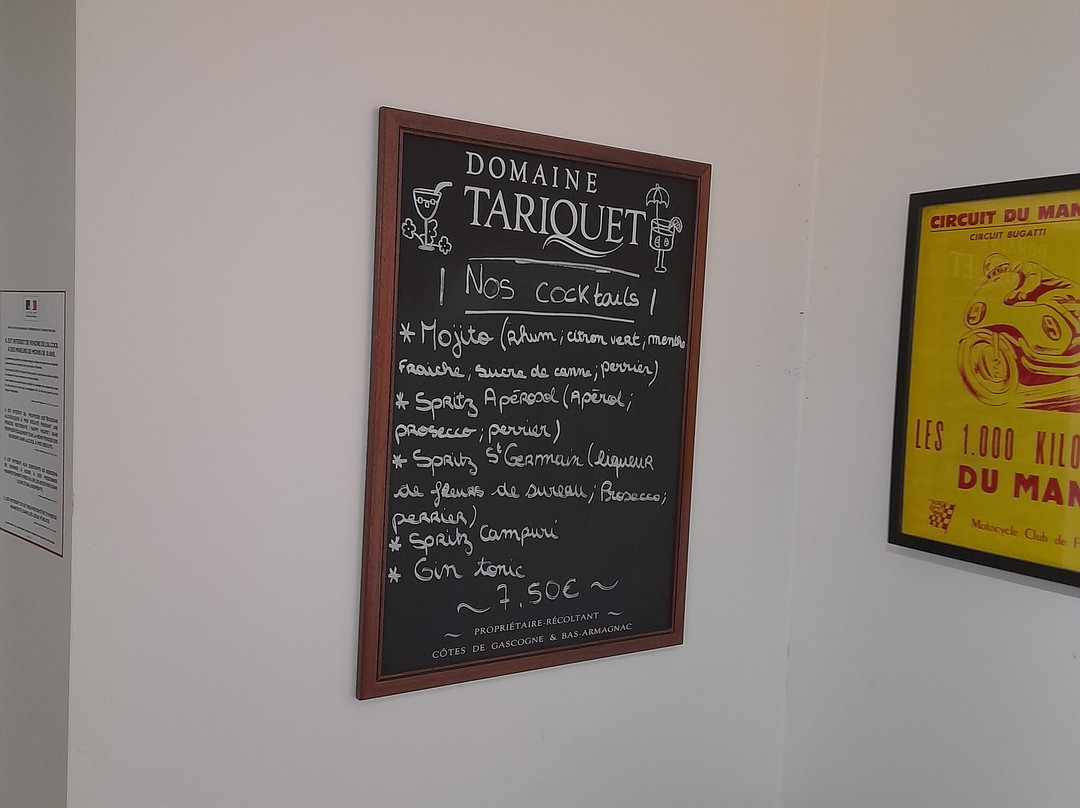 DOMAINE
TARIQUET
Nos cocktails
* Mojito (Rhum; citron vert; menthe
Fraiche; sucre de canne; perrier)
* Spritz Apérool (Apérol;
prosecco; perrier)
* Spritz St Germain (liqueur
de fleurs de sureau; Prosecco;
perrier)
* Spritz Campuri
* Gin tonic
~ 7.50€ ~
~ PROPRIÉTAIRE-RÉCOLTANT ~
CÔTES DE GASCOGNE & BAS-ARMAGNAC
CIRCUIT DU MAN
CIRCUIT BUGATTI
9
9
LES 1.000 KILO
DU MAN
Motocycle Club de F
IL EST INTERDIT DE VENDRE DE L'ALCOOL
À DES MINEURS DE MOINS DE 18 ANS.